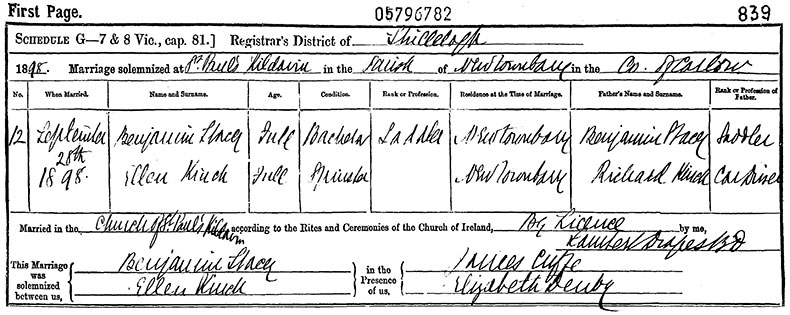 First Page. 05796782 839
SCHEDULE G—7 & 8 Vic., cap. 81.] Registrar's District of Shillelagh
1898. Marriage solemnized at St. Paul's Kildavin in the Parish of Newtownbarry in the Co. of Carlow
No. When Married. Name and Surname. Age. Condition. Rank or Profession. Residence at the Time of Marriage. Father's Name and Surname. Rank or Profession of Father.
12 September 28th 1898. Benjamin Stacey Full Bachelor Saddler Newtownbarry Benjamin Stacey Saddler
Ellen Kinch Full Spinster Newtownbarry Richard Kinch Car Driver
Married in the Church of St. Paul's Kildavin according to the Rites and Ceremonies of the Church of Ireland, By Licence by me,
Lambert Drapes BD
This Marriage was solemnized between us, Benjamin Stacey
Ellen Kinch
in the Presence of us, Cuffe
Elizabeth Denby